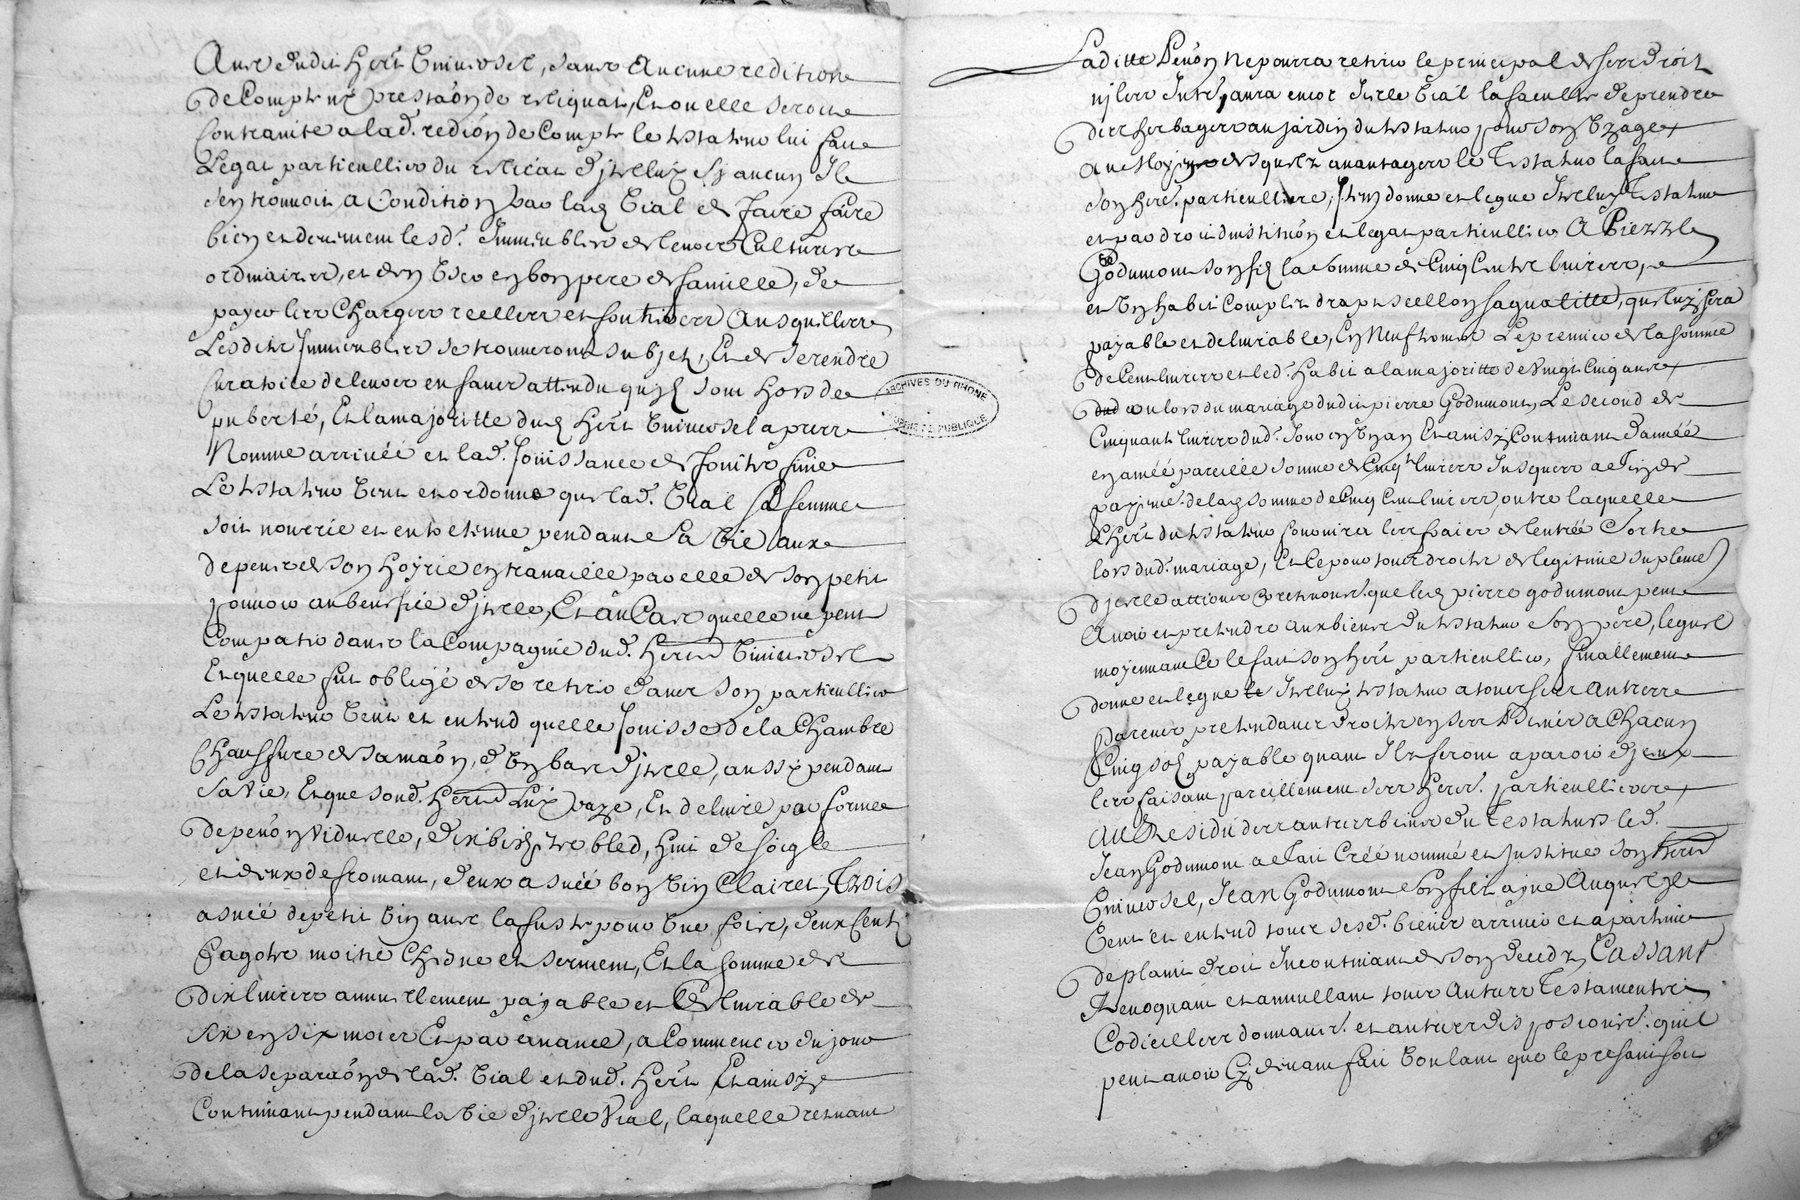 Ans dudit herit. universel, sans aucune redition
de compte ny prestaõn de reliquat, et ou elle seroit
contrainte a lad. rediõn de compte le testateur lui faict
legat particullier du relicat d'jcelluy sy aucun Il
s'en trouvoit a condition par lad. Vial de faire faire
bien et deuement lesd. Immeubles de leurs cultures
ordinaires, et d'en user en bon pere de famille, de
payer les charges reelles et fontieres ausquelles
lesdits Immeubles se trouveront subjet, et de se rendre
curatrice de leurs enfans attendu qu'jls sont hors de
puberté, et la majoritte dud. herit. universel a preme
nomme arrivéé et lad. jouissance de fruitz finie
Le testateur veut et ordonne que lad. Vial sa femme
soit nourrie et entretenue pendant sa vie aux
depens de son hoyrie en travaillé par elle de son petit
pouvoir au benefice d'jcelle, et au cas quelle ne peut
compatir dans la compagnie dud. heritr. universel
et quelle fut obligé de se retirer dans son particullier
Le testateur veut et entend quelle jouisse de la chambre
chauffure de sa maõn, d'un bas d'jcelle, aussy pendant
sa vie, et que sond. heritr. luy paye, et delivre par forme
de pensõn viduelle, dix bichets bled, huit de soigle
et deux de fromant, deux asnéé bon vin clairet, trois
asnéé de petit vin avec la fuste pour une fois, deux cents
fagots moitié chesne et serment, et la somme de
dix livres annuellement payable et delivrable de
six en six mois et par avance, a commencer du jour
de la separaõn de lad. Vial et dud. herit. et ainsy
continuant pendant la vie d'jcelle Vial, laquelle retirant
Laditte pensõn ne pourra retirer le principal de ses droits
nj les Intr. aura encor jcelle Vial la faculté de prendre
des herbages au jardin du testateur pour son usage
au moyen desquelz avantages le testateur la fait
son herit. particulliere, Item donne et legue jcelluy testateur
et par droit d'institution et legat particullier A Pierre
Godumont son filz la somme de cinq cents livres,
et un habit complet drap scellon sa qualitte, que luy sera
payable et delivrable, en neuf termes le premier de la somme
de cent livres et led. habit a la majoritte de vingt cinq ans
ou lors du mariage dudit pierre Godumont, le second de
cinquante livres dud. jour en un an et ainsy continuant d'année
en année pareille somme de cinqte livres jusques a fin de
payemt. de lad. somme de cinq cent livres, outre laquelle
L'herit. du testateur fournira les frais de l'entrée et sortie
lors dud. mariage, et le pour tous droits de legitime suplemt.
d'jcelle actions et pretentions que led. pierre godumont peut
avoir et pretendre aux biens du testateur son pere, lequel
moyennant ce le fait son herit. particullier, finallement
donne et legue jcelluy testateur a tous ses autres
parens pretendans droits en ses biens a chacun
cinq solz payable quant Ils feront aparoir d'jceux
les faisant pareillement ses herit. particulliers
Au Residu des autres biens du testateur led.
Jean Godumont a fait créé nommé et Institue son heritr.
universel, Jean Godumont son filz ajne Auquel Il
veut et entend tous sesd. biens arrivés et apartenir
de plaint droit Incontinant de son decedz, Cassant
Revoquant et annullant tous autres testaments
Codicilles donnations et autres dispositions. qu'il
peut avoir Cy devant fait voulant que le presant soit